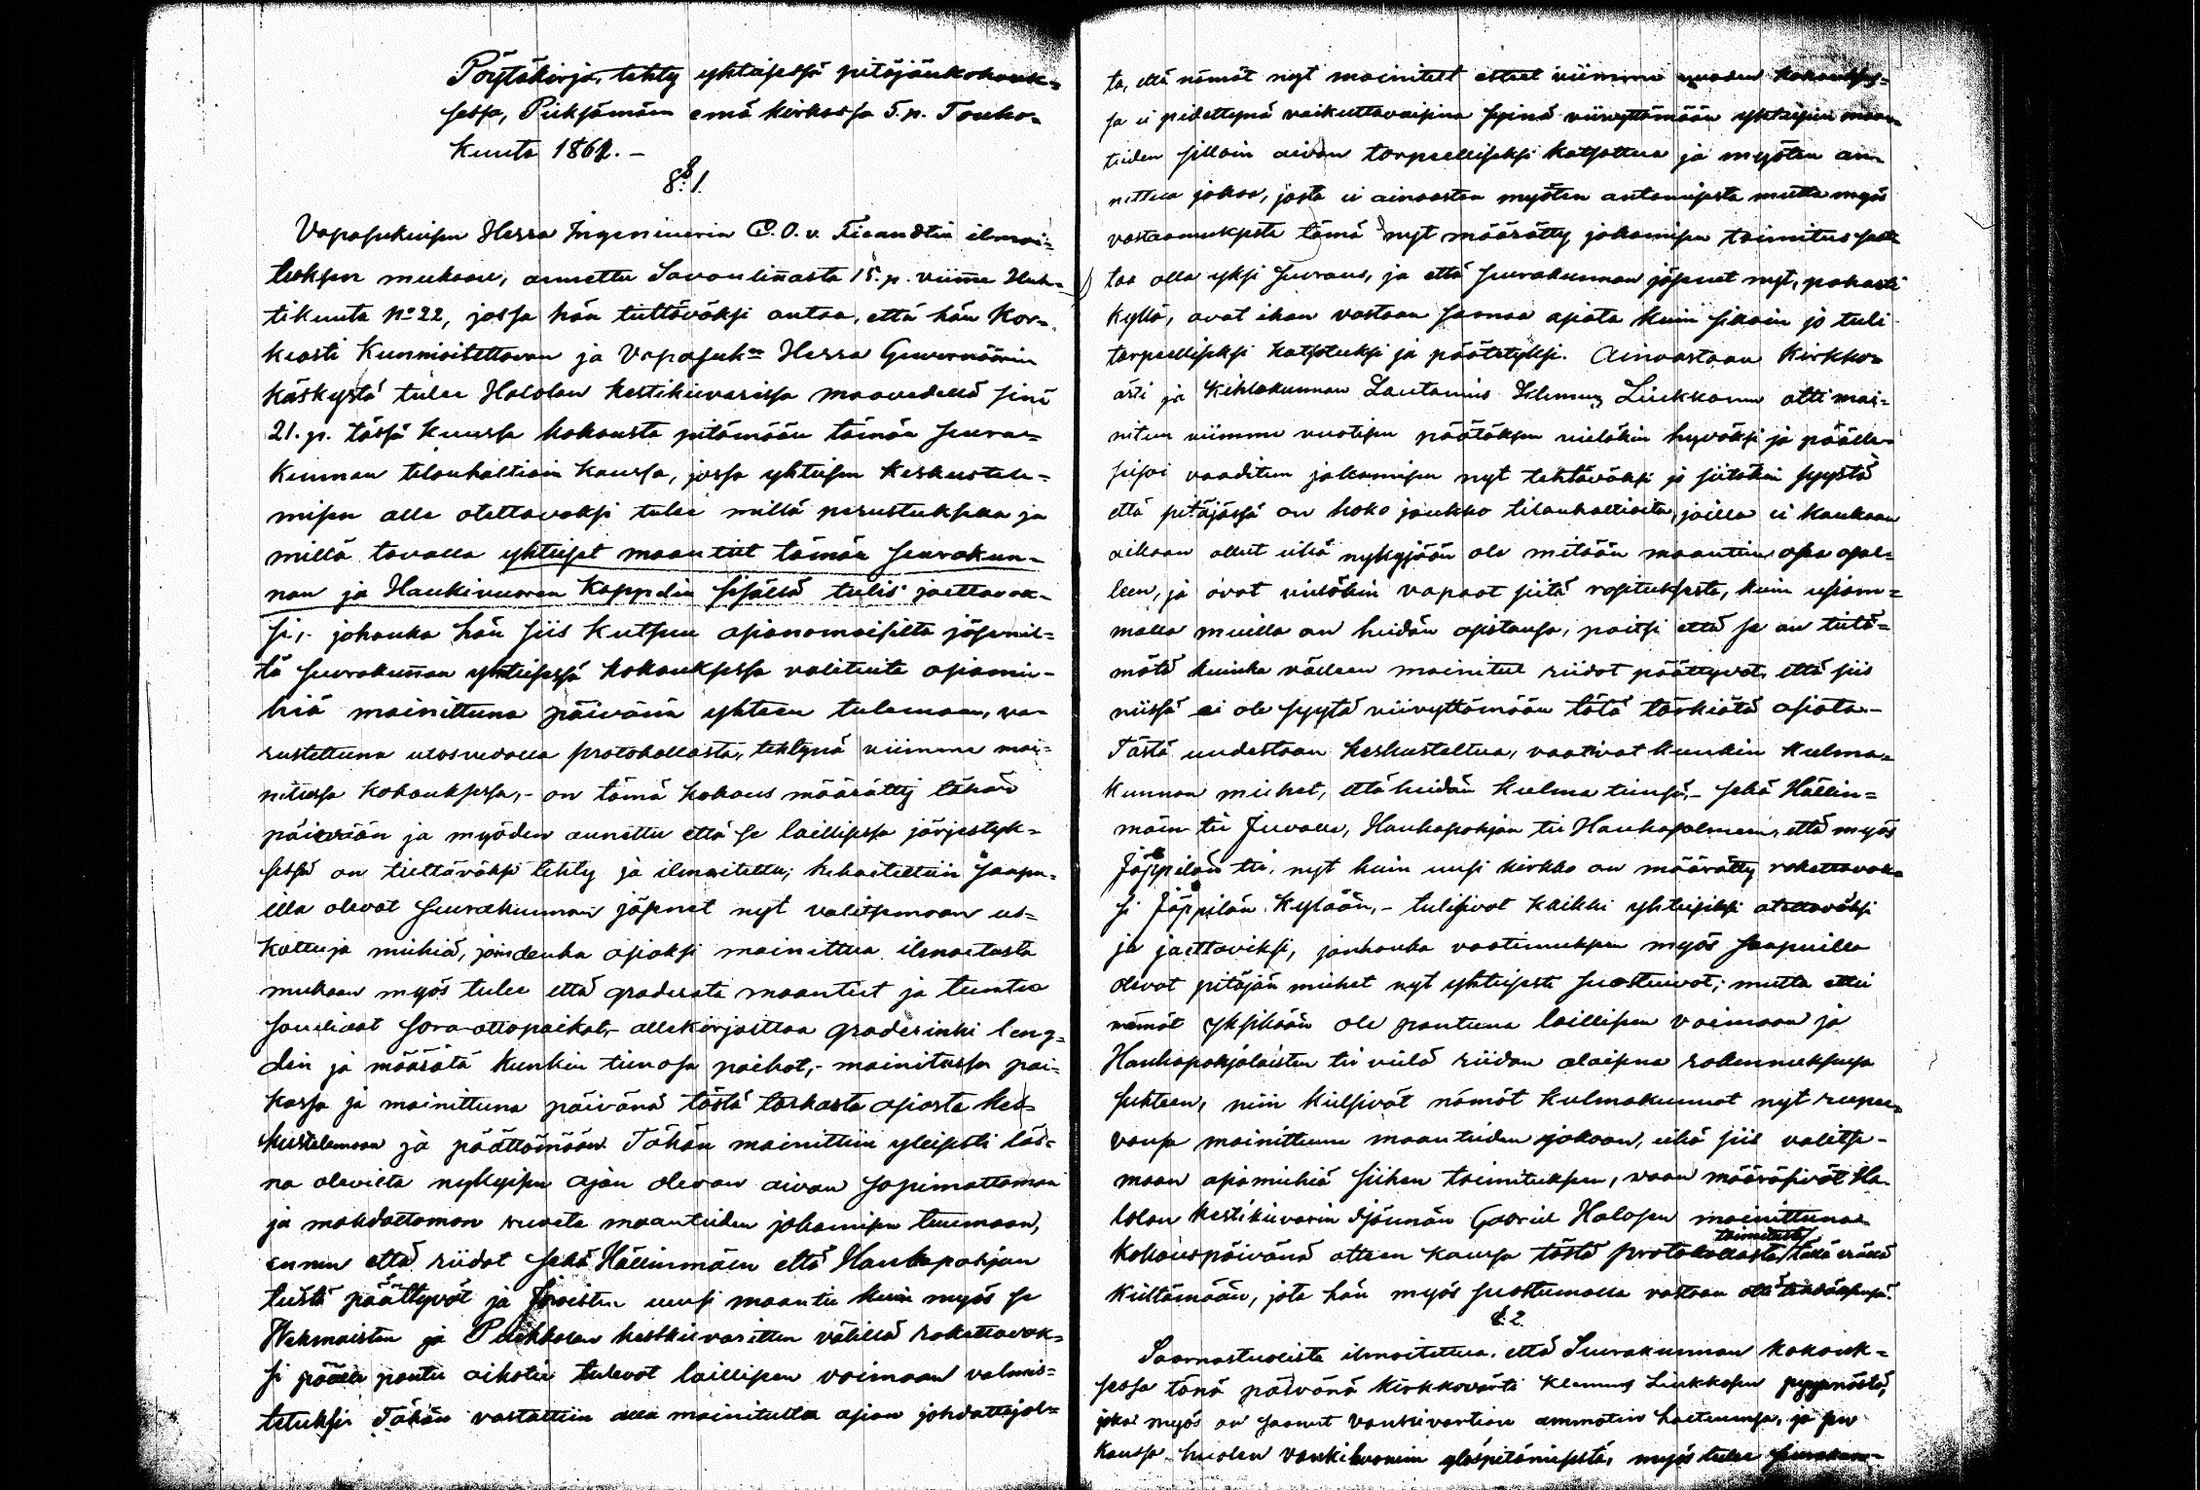 Pöytäkirja, tehty yhteisessä pitäjänkokouk=
sessa, Pieksämäen emä kirkossa 5. p. Touko=
Kuuta 1861. –
§ 1.
Vapasukuisen Herra Ingeniuerin C. O. v. Fieandtin ilmoi=
tuksen mukaan, annettu Savonlinasta 15. p. viime Huh=
tikuuta No 22, jossa hän tiettäväksi antaa, että hän Kor=
keasti Kunnioitettavan ja Vapasuk:en Herra Guvernöörin
käskystä tulee Halolan kestikievarissa maavedellä sinä
21. p. tässä kuussa kokousta pitämään tämän seura=
kunnan tilanhaltiain kanssa, jossa yhteisen keskustele=
misen alle otettavaksi tulee millä perustuksella ja
millä tavalla yhteiset maantiet tämän seurakun=
nan ja Haukivuoren Kappelin sisällä tulis jaettavak=
si, – johonka hän siis kutsuu asianomaisilta jäsenil=
tä seurakunnan yhteisessä kokouksessa valituita asiamie=
hiä mainittuna päivänä yhteen tulemaan, va=
rustettuna ulosvedolla protokollasta, tehtynä viimme mai=
nitussa kokouksessa, – on tämä kokous määrätty tähän
päivään ja myöden annettu että se laillisessa järjestyk=
sessä on tiettäväksi tehty ja ilmoitettu; kehoiteltiin saapu=
illa olevat seurakunnan jäsenet nyt valitsemaan us=
kottuja miehiä, joindenka asiaksi mainittua ilmoitusta
mukaan myös tulee että graderata maantiet ja tuntea
soveliaat sora-ottopaikat, – allekirjoittaa graderinki leng=
din ja määrätä kunkin tienosa paikat, – mainitussa pai=
kassa ja mainittuna päivänä tästä tarkasta asiasta kes=
kustelemaan ja päättämään. Tähän mainittiin yleisesti läs=
nä olevilta nykyisen ajan olevan aivan sopimattoman
ja mahdottoman ruveta maanteiden jakamisen tuumaan,
ennen että riidat sekä Hällinmäen että Haukapohjan
tiestä päättyvät ja Joroisten uusi maantie kuin myös se
Wehmaisten ja Puikkolan kestikievaritten välillä rakettavak=
si päälle pantu aikatie tulevat laillisen voimaan valmis=
tetuksi. Tähän vastattiin alla mainitulla asian johdattajal=
ta, että nämät nyt mainitut esteet viimme vuoden kokoukses=
sa ei pidettynä vaikuttavaisina syinä viivyttämään yhteisien maan=
teiden silloin aivan tarpeelliseksi katsottua ja myöten an=
nettua jakoa, josta ei ainoastan myöten antamisesta mutta myös
vastaanuksesta tämä nyt määrätty jakamisen toimitus saat=
taa olla yksi seuraus, ja että seurakunnan jäsenet nyt, pahasti
kyllä, ovat ihan vastaan samaa asiata kuin silloin jo tuli
tarpeelliseksi katsotuksi ja päätetyksi. Ainoastaan Kirkko=
ärti ja Kihlakunnan Lautamies Klemus Liukkonen otti mai=
nitun viimme vuotisen päätöksen vieläkin hyväksi ja päälle=
seisoi vaaditun jakamisen nyt tehtäväksi jo siitäkin syystä
että pitäjässä on koko joukko tilanhaltioita, joilla ei kaukaan
aikaan ollut eikä nykyjään ole mitään maantien osa osal=
leen, ja ovat vieläkin vapaat siitä rasituksesta, kuin useam=
malla muilla on heidän osistansa, paitsi että se on tietä=
mätä kuinka välleen mainitut riidat päättyvät, että siis
niissä ei ole syytä viivyttämään tätä tärkiätä asiata. –
Tästä uudestaan keskusteltua, vaativat kunkin kulma=
kunnan miehet, että heidän kulma tiensä, – sekä Hällin=
mäen tie Juvalle, Haukapohjan tie Haukasalmeen, että myös
Jäppilän tie, nyt kuin uusi kirkko on määrätty rakettavak=
si Jäppilän Kylään, – tulisivat kaikki yhteisiksi otettaväksi
ja jaettaviksi, jonhonka vaatimuksen myös saapuilla
olevat pitäjän miehet nyt yhteisesti suostuivat; mutta ettei
nämät yksikään ole pantuna laillisen voimaan ja
Haukapohjalaisten tie vielä riidan alaisena rakennuksensa
suhteen, niin kielsivät nämät kulmakunnat nyt rupee=
vansa mainittuun maanteiden jakoon, eikä siis valitse=
maan asiamiehiä siihen toimituksen, vaan määräsivät Ha=
lolan kestikievarin isännän Gabriel Halosen mainittuna
kokouspäivänä otteen kanssa tästä protokollasta toimitusta tällä erällä
kieltämään, jota hän myös suostumalla vastaan otti tehdäksensä.
§ 2.
Saarnastuolista ilmoitettua, että Seurakunnan kokouk=
sessa tänä päivänä kirkkovärti Klemus Liukkosen pyynnöstä,
joka myös on saanut vanrivartian ammatin haltuunsa, ja sen
kanssa huolen vankihuoneen ylöspitämisestä, myös tulee seurakun=